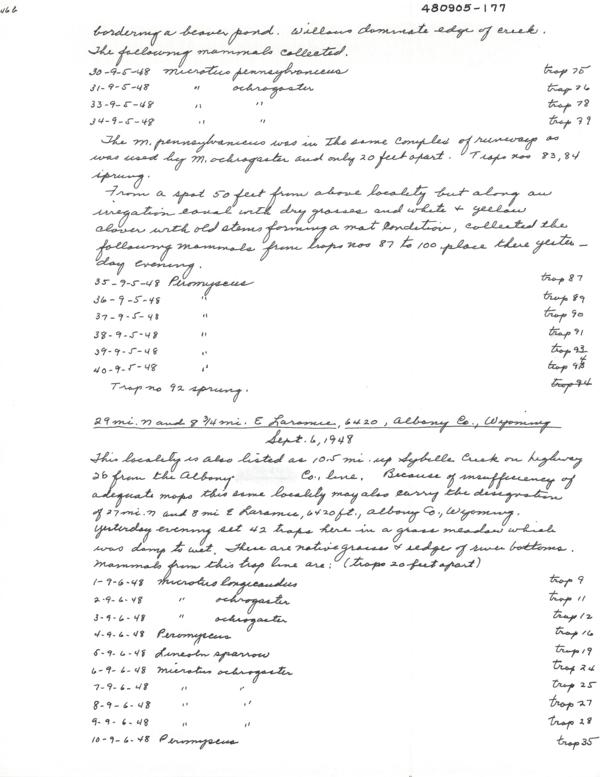 466
480905-177
bordering a beaver pond. Willows dominate edge of creek.
The following mammals collected.
30-9-5-48 Microtus pennsylvanicus trap 75
31-9-5-48 " ochrogaster trap 76
33-9-5-48 " " trap 78
34-9-5-48 " " trap 79
The M. pennsylvanicus was in the same complex of runways as
was used by M. ochrogaster and only 20 feet apart. Traps nos 83, 84
sprung.
From a spot 50 feet from above locality but along an
irregation canal with dry grasses and white + yellow
clover with old stems forming a mat condition, collected the
following mammals from traps nos 87 to 100 place there yester-
day evening.
35-9-5-48 Peromyscus trap 87
36-9-5-48 " trap 89
37-9-5-48 " trap 90
38-9-5-48 " trap 91
39-9-5-48 " trap 93
40-9-5-48 " trap 94
Trap no 92 sprung. trap 94
29 mi. N and 8 3/4 mi. E Laramie, 6420, Albany Co., Wyoming
Sept. 6, 1948
This locality is also listed as 10.5 mi. up Sybelle Creek on highway
26 from the Albany Co., line. Because of insufficiency of
adequate maps this same locality may also carry the designation
of 27 mi. N and 8 mi E Laramie, 6420 ft., Albany Co., Wyoming.
Yesterday evening set 42 traps here in a grass meadow which
was damp to wet. These are native grasses + sedge of river bottoms.
Mammals from this trap line are: (traps 20 feet apart)
1-9-6-48 Microtus longicaudus trap 9
2-9-6-48 " ochrogaster trap 11
3-9-6-48 " ochrogaster trap 12
4-9-6-48 Peromyscus trap 16
5-9-6-48 Lincoln sparrow trap 19
6-9-6-48 Microtus ochrogaster trap 24
7-9-6-48 " " trap 25
8-9-6-48 " " trap 27
9-9-6-48 " " trap 28
10-9-6-48 Peromyscus trap 35